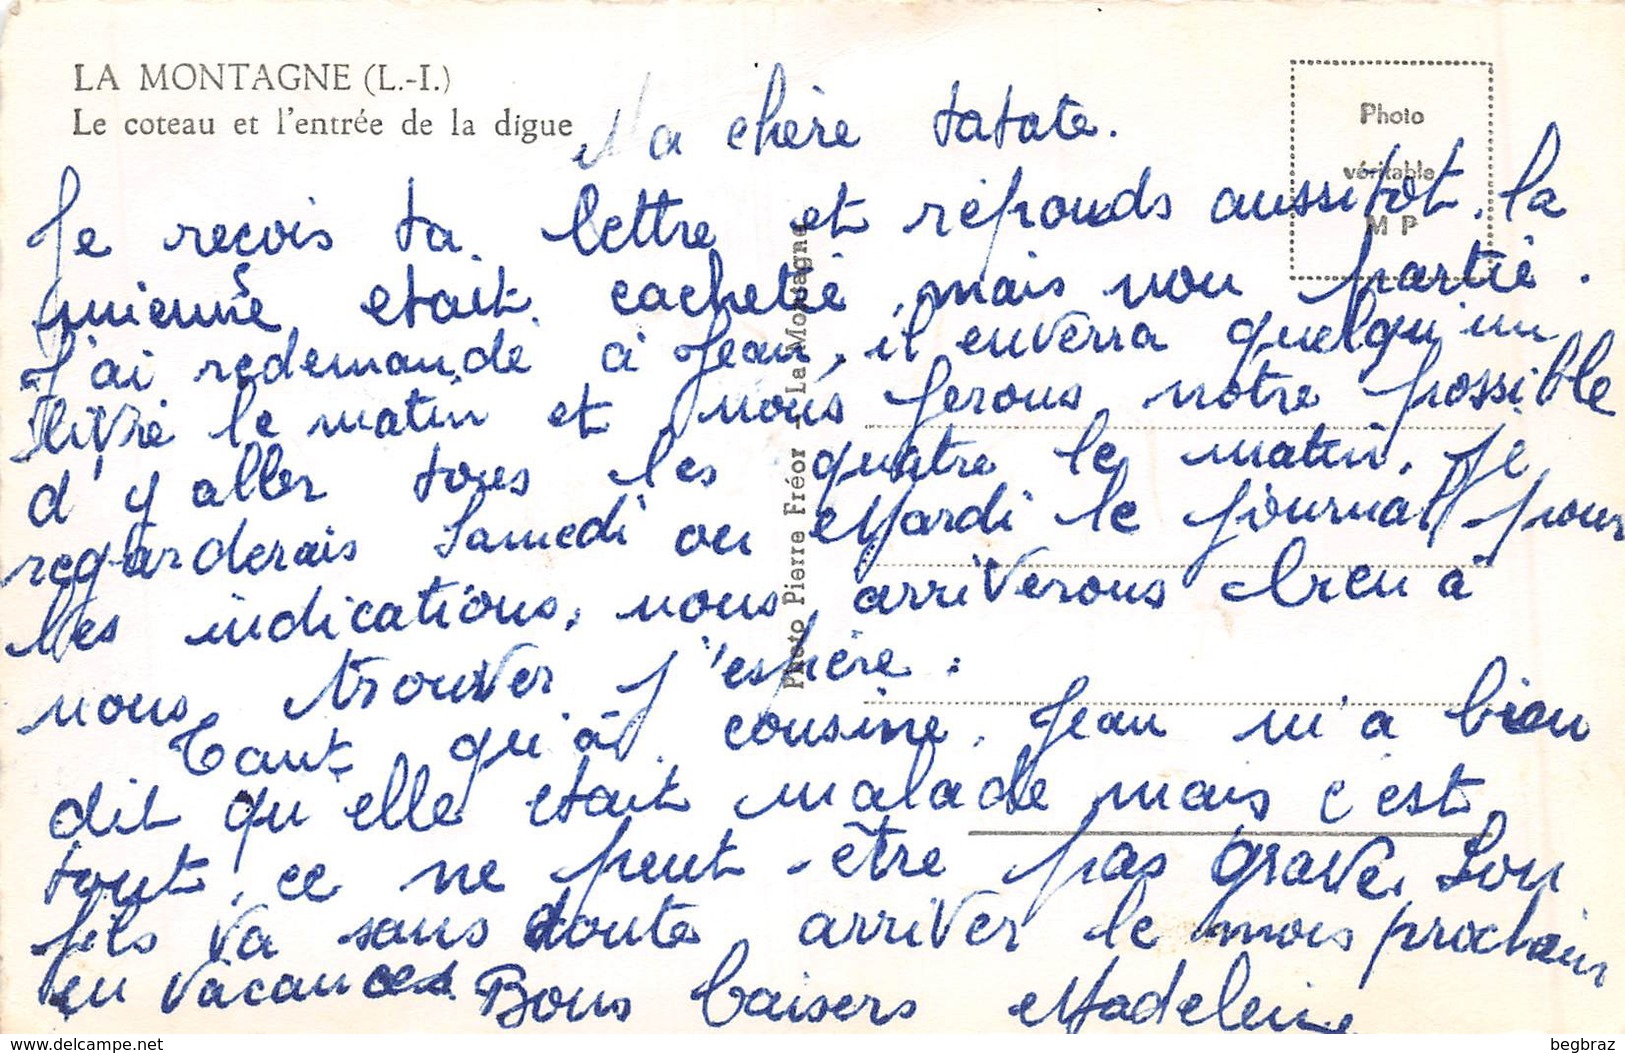 LA MONTAGNE (L.-I.)
Le coteau et l'entrée de la digue
Photo
véritable
M P
Ma chère tatate.
Je reçois ta lettre et réponds aussitôt. la
mienne était cachetée, mais non partie.
J'ai redemandé à Jean, il enverra quelqu'un
livré le matin et nous ferons notre possible
d'y aller tous les quatre le matin. Je
regarderais Samedi ou Mardi le journal pour
les indications, nous arriverons bien à
nous trouver j'espère.
Tant qu'à cousine, Jean m'a bien
dit qu'elle était malade mais c'est
tout, ce ne peut-être pas grave. Son
fils va sans doute arriver le mois prochain
en vacances. Bons baisers Madeleine
Photo Pierre Fréor - La Montagne
begbraz